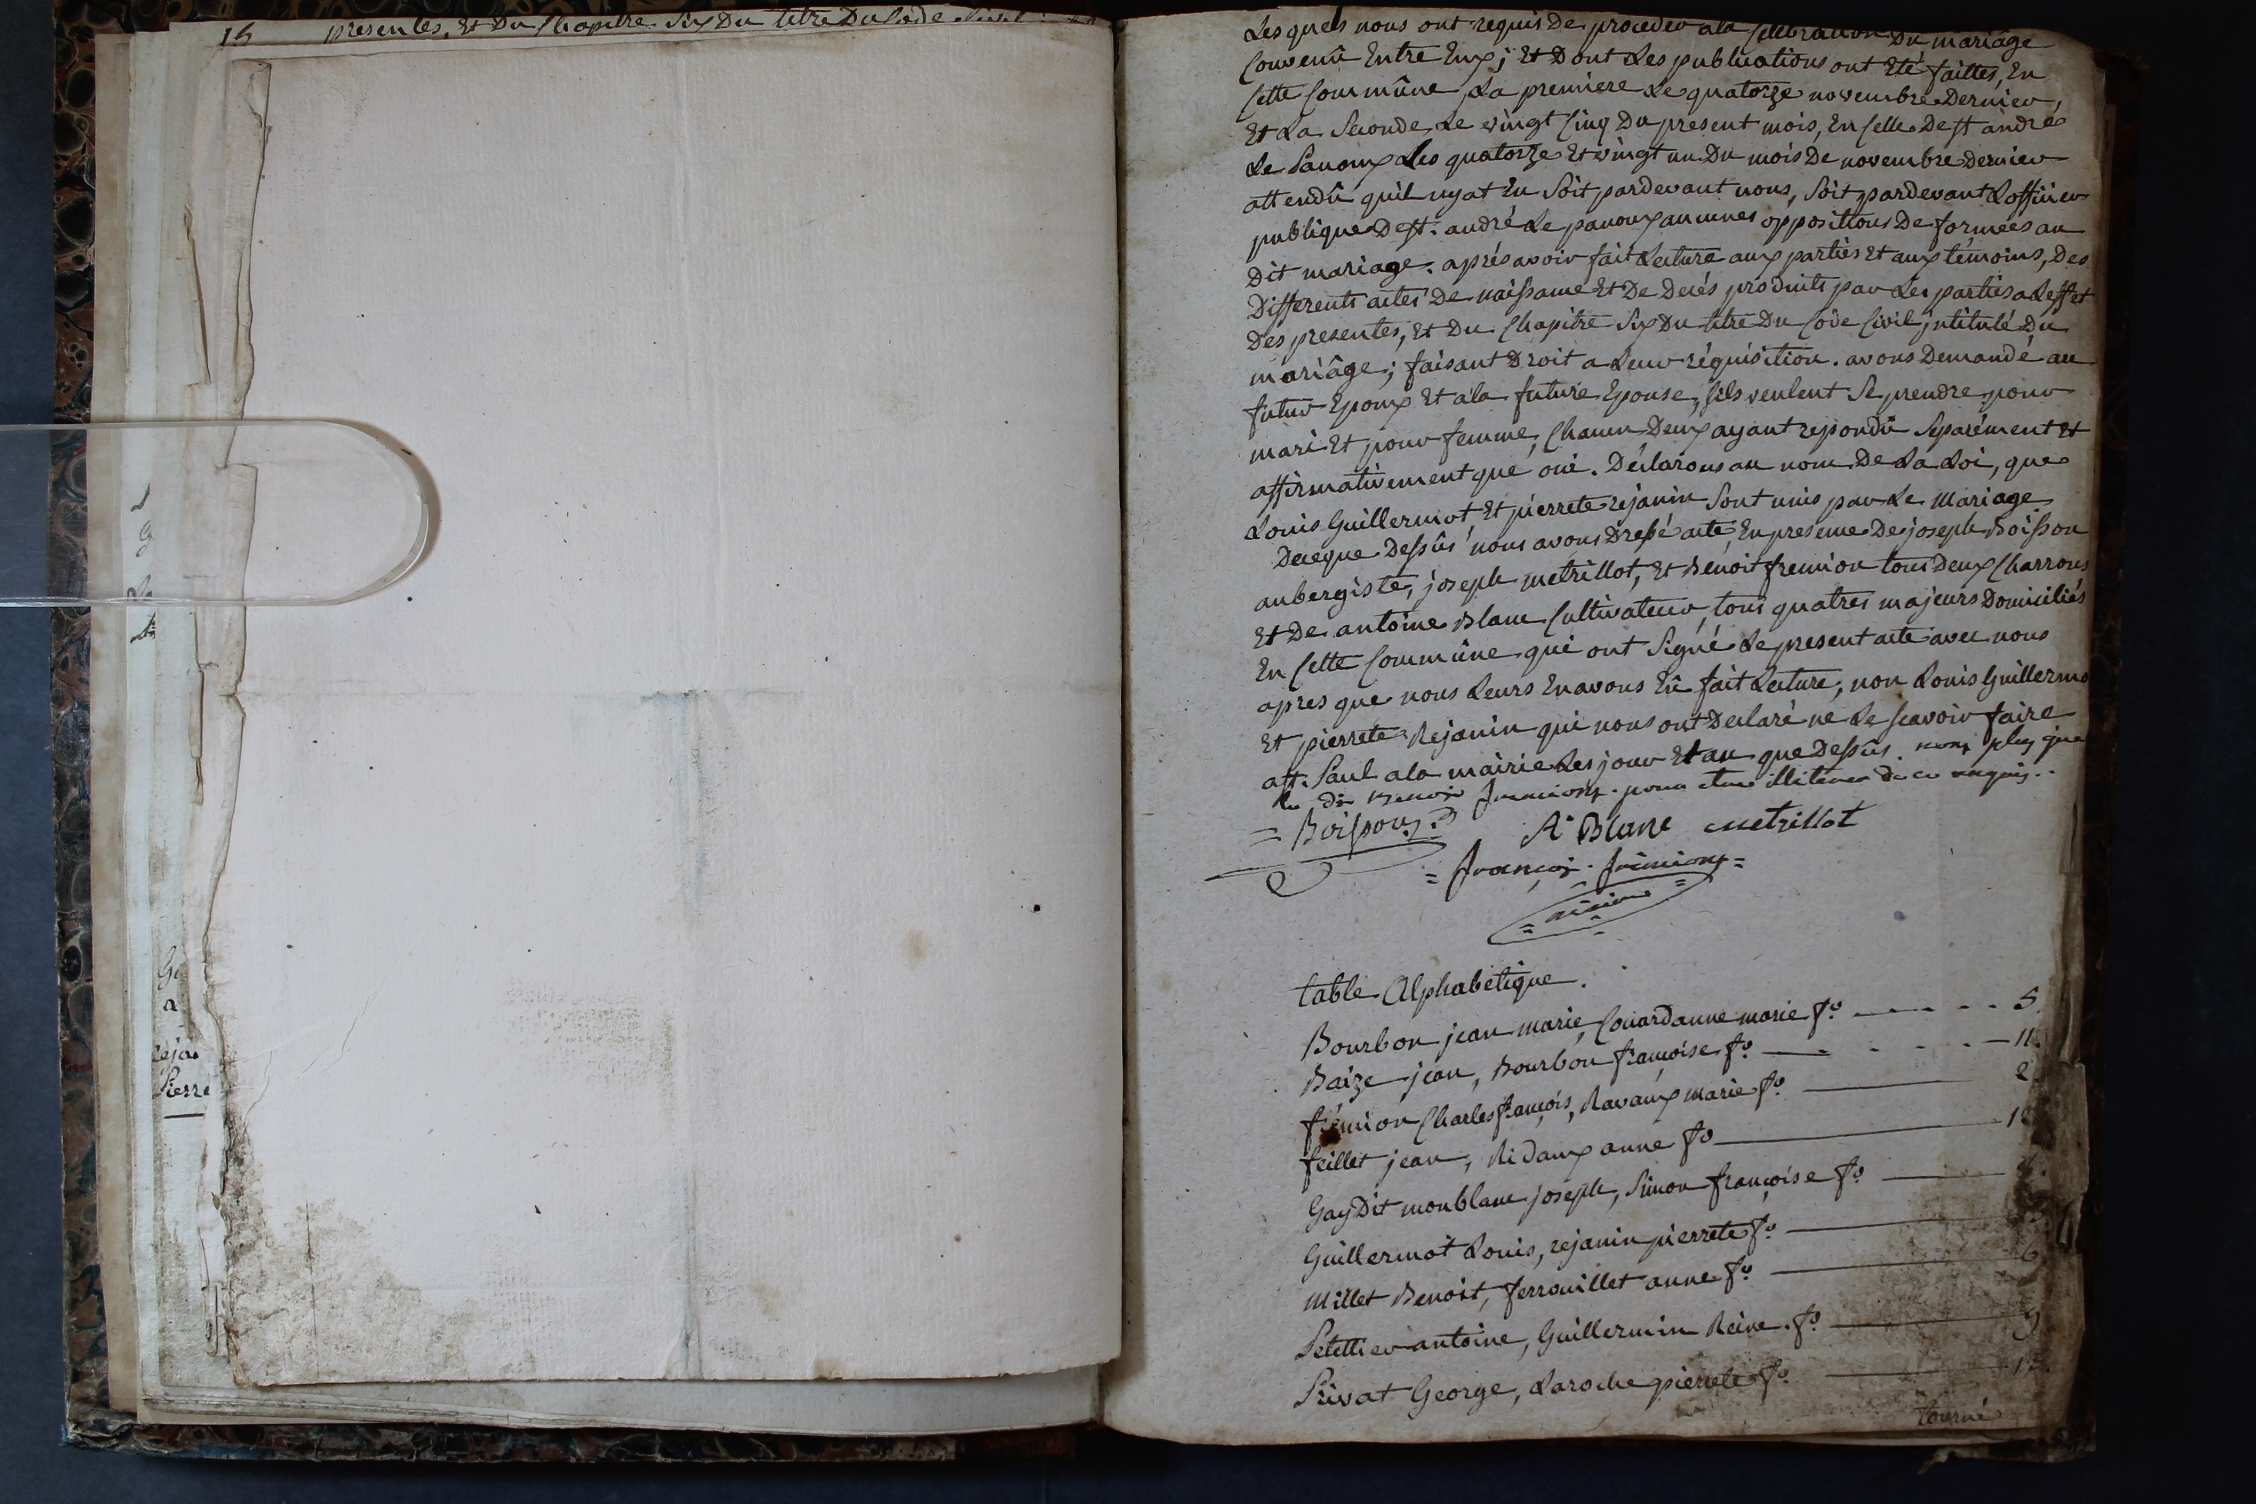 15 presentes, Et Du Chapitre Six Du titre Du Code Civil
G
a
reja
Pierre
Lesquels nous ont requis De proceder a la Celebration Du mariage
Convenû Entre Eux; Et Dont Les publications ont Eté faittes, En
Cette Commûne, La premiere Le quatorze novembre Dernier,
Et La Seconde Le vingt Cinq Du present mois, En Celle De st andré
Le Panoux Les quatorze Et vingt un Du mois De novembre dernier
attendû quil nyat Eu Soit pardevant nous, Soit pardevant Lofficier
publique De st. andré Le panoux aucunes oppositions De formées au
Dit mariage. aprés avoir fait Lecture aux partiés Et aux témoins, Des
Differents actes De naissance Et De Decés produits par Les parties a Leffet
Des presentes, Et Du Chapitre Six Du titre Du Code Civil, intitulé Du
mariâge; faisant Droit a Leur réquisition. avons Demandé au
futur Epoux Et a la future Epouse, sils veulent Se prendre pour
mari Et pour femme, Chacun Deux ayant repondû Separément Et
affirmativement que oui. Déclarons au nom De La Loi, que
Louis Guillermot, Et pierrete rejanin Sont unis par Le Mariage
De ce que Dessûs nous avons Dressé acte, En presence De joseph Boisson
aubergiste, joseph metrillot, Et Benoit fremion tous Deux Charrons
Et De antoine Blanc Cultivateur, tous quatres majeurs Domiciliés
En Cette Commûne qui ont Signé Le present acte avec nous
apres que nous Leurs En avons Eû fait Lecture, non Louis Guillermo
Et pierrete Rejanin qui nous ont Declaré ne Le scavoir faire
a st. Paul a la mairie Les jour Et an que Dessûs. non plus que
le dit Benoit fremiont pour etre illiteré de ce requis..
= Boisson A Blanc metrillot
= françois fremiont =
= maire =
table Alphabétique.
Bourbon jean marie, Couard anne marie fo. 5.
Baize jean, Bourbon françoise fo. 11.
frémion Charles françois, Ravaux marie fo. 2
feillet jean, Ridaux anne fo 1
Gay Dit monblanc joseph, Simon françoise fo.
Guillermot Louis, rejanin pierrete fo.
Millet Benoit, ferrouillet anne fo. 6
Petettier antoine, Guillermin Reine. fo. 9
Privat George, Laroche pierrete fo. 1
tourné